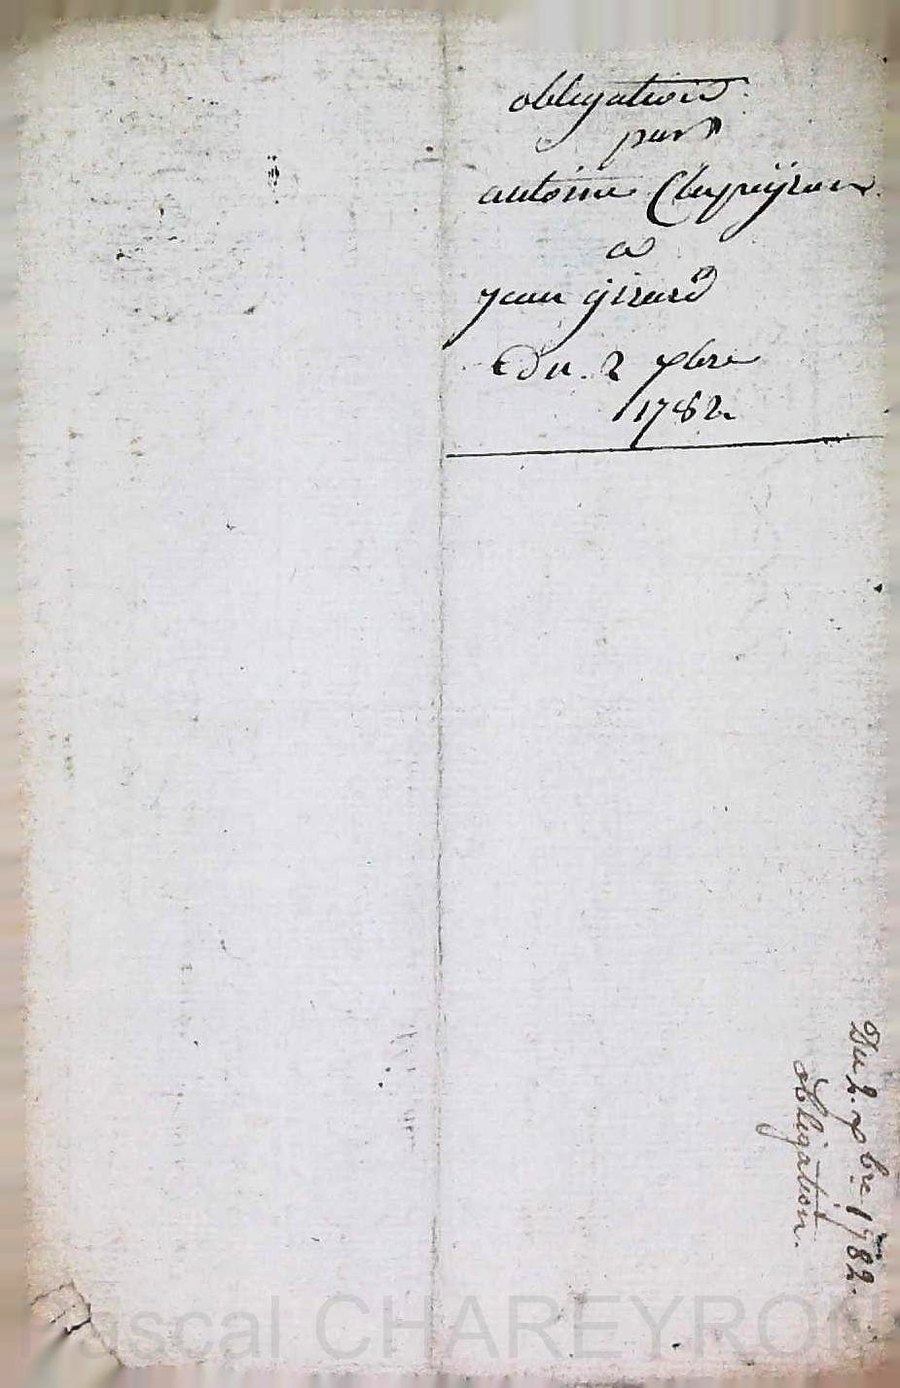 obligation
par
antoine Cheyneÿron
a
jean girard
Du 2 xbre
1782
Du 2. xbre 1782.
obligation.
Pascal CHAREYRON